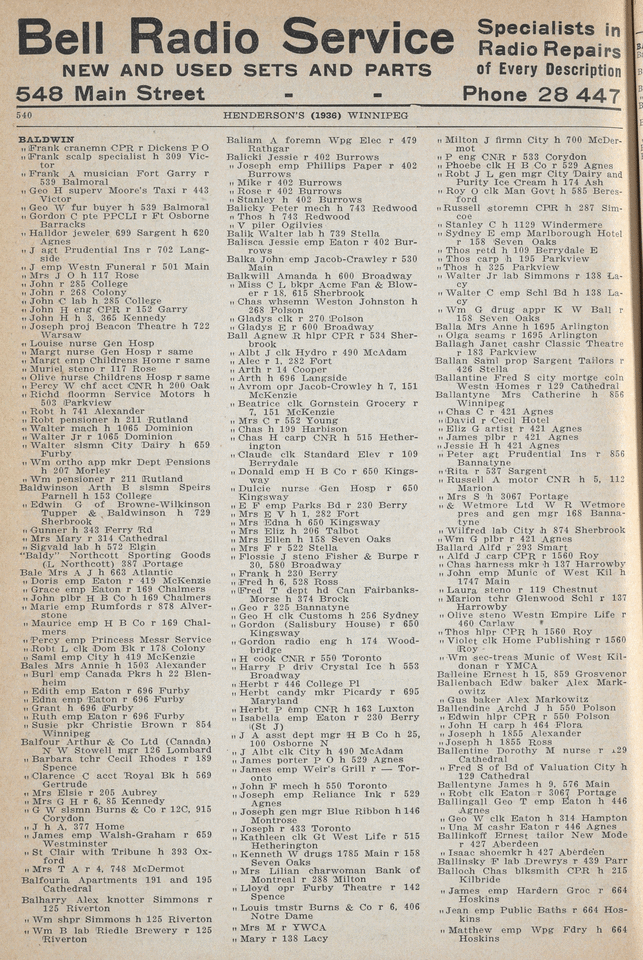 Bell Radio Service
NEW AND USED SETS AND PARTS
548 Main Street - -
Specialists in
Radio Repairs
of Every Description
Phone 28 447
540 HENDERSON'S (1936) WINNIPEG
BALDWIN
„ Frank cranemn CPR r Dickens P O
„ Frank scalp specialist h 309 Vic-
tor
„ Frank A musician Fort Garry r
539 Balmoral
„ Geo H superv Moore's Taxi r 443
Victor
„ Geo W fur buyer h 539 Balmoral
„ Gordon C pte PPCLI r Ft Osborne
Barracks
„ Halldor jeweler 699 Sargent h 620
Agnes
„ J agt Prudential Ins r 702 Lang-
side
„ J emp Westn Funeral r 501 Main
„ Mrs J O h 117 Rose
„ John r 285 College
„ John r 268 Colony
„ John C lab h 285 College
„ John H eng CPR r 152 Garry
„ John H h 3, 365 Kennedy
„ Joseph proj Beacon Theatre h 722
Warsaw
„ Louise nurse Gen Hosp
„ Margt nurse Gen Hosp r same
„ Margt emp Childrens Home r same
„ Muriel steno r 117 Rose
„ Olive nurse Childrens Hosp r same
„ Percy W chf acct CNR h 200 Oak
„ Richd floormn Service Motors h
503 Parkview
„ Robt h 741 Alexander
„ Robt pensioner h 211 Rutland
„ Walter mach h 1065 Dominion
„ Walter Jr r 1065 Dominion
„ Walter slsmn City Dairy h 659
Furby
„ Wm ortho app mkr Dept Pensions
h 207 Morley
„ Wm pensioner r 211 Rutland
Baldwinson Arth B slsmn Speirs
Parnell h 153 College
„ Edwin G of Browne-Wilkinson
Tupper & Baldwinson h 729
Sherbrook
„ Gunner h 343 Ferry Rd
„ Mrs Mary r 314 Cathedral
„ Sigvald lab h 572 Elgin
"Baldy" Northcott Sporting Goods
(L Northcott) 387 Portage
Bale Mrs A J h 663 Atlantic
„ Doris emp Eaton r 419 McKenzie
„ Grace emp Eaton r 169 Chalmers
„ John plbr H B C h 169 Chalmers
„ Marie emp Rumfords r 878 Alver-
stone
„ Maurice emp H B C r 169 Chal-
mers
„ Percy emp Princess Messr Service
„ Robt L clk Dom Bk r 178 Colony
„ Saml emp City h 419 McKenzie
Bales Mrs Annie h 1503 Alexander
„ Burl emp Canada Pkrs h 22 Blen-
heim
„ Edith emp Eaton r 696 Furby
„ Edna emp Eaton r 696 Furby
„ Grant h 696 Furby
„ Ruth emp Eaton r 696 Furby
„ Susie pkr Christie Brown r 854
Winnipeg
Balfour Arthur & Co Ltd (Canada)
N W Stowell mgr 126 Lombard
„ Barbara tchr Cecil Rhodes r 189
Spence
„ Clarence C acct Royal Bk h 569
Gertrude
„ Mrs Elsie r 205 Aubrey
„ Mrs G H r 6, 85 Kennedy
„ G W slsmn Burns & Co r 12C, 915
Corydon
„ J h A, 377 Home
„ James emp Walsh-Graham r 659
Westminster
„ St Clair with Tribune h 393 Ox-
ford
„ Mrs T A r 4, 748 McDermot
Balfouria Apartments 191 and 195
Cathedral
Balharry Alex knotter Simmons r
125 Riverton
„ Wm shpr Simmons h 125 Riverton
„ Wm B lab Riedle Brewery r 125
Riverton
Baliam A foremn Wpg Elec r 479
Rathgar
Balicki Jessie r 402 Burrows
„ Joseph emp Phillips Paper r 402
Burrows
„ Mike r 402 Burrows
„ Rose r 402 Burrows
„ Stanley h 402 Burrows
Balicky Peter mech h 743 Redwood
„ Thos h 743 Redwood
„ V piler Ogilvies
Balik Walter lab h 739 Stella
Balisca Jessie emp Eaton r 402 Bur-
rows
Balka John emp Jacob-Crawley r 530
Main
Balkwill Amanda h 600 Broadway
„ Miss C L bkpr Acme Fan & Blow-
er r 18, 615 Sherbrook
„ Chas whsemn Weston Johnston h
268 Polson
„ Gladys clk r 270 Polson
„ Gladys E r 600 Broadway
Ball Agnew R hlpr CPR r 534 Sher-
brook
„ Albt J clk Hydro r 490 McAdam
„ Alec r 1, 282 Fort
„ Arth r 14 Cooper
„ Arth h 696 Langside
„ Avrom opr Jacob-Crowley h 7, 151
McKenzie
„ Beatrice clk Gornstein Grocery r
7, 151 McKenzie
„ Mrs C r 552 Young
„ Chas h 199 Harbison
„ Chas H carp CNR h 515 Hether-
ington
„ Claude clk Standard Elev r 109
Berrydale
„ Donald emp H B Co r 650 Kings-
way
„ Dulcie nurse Gen Hosp r 650
Kingsway
„ E F emp Parks Bd r 230 Berry
„ Mrs E V h 1, 282 Fort
„ Mrs Edna h 650 Kingsway
„ Mrs Eliz h 206 Talbot
„ Mrs Ellen h 158 Seven Oaks
„ Mrs F r 522 Stella
„ Flossie J steno Fisher & Burpe r
30, 580 Broadway
„ Frank h 230 Berry
„ Fred h 6, 528 Ross
„ Fred T dept hd Can Fairbanks-
Morse h 374 Brock
„ Geo r 325 Bannatyne
„ Geo H clk Customs h 256 Sydney
„ Gordon (Salisbury House) r 650
Kingsway
„ Gordon radio eng h 174 Wood-
bridge
„ H cook CNR r 550 Toronto
„ Harry P driv Crystal Ice h 553
Broadway
„ Herbt r 446 College Pl
„ Herbt candy mkr Picardy r 695
Maryland
„ Herbt P emp CNR h 163 Luxton
„ Isabella emp Eaton r 230 Berry
(St J)
„ J A asst dept mgr H B Co h 25,
100 Osborne N
„ J Albt clk City h 490 McAdam
„ James porter P O h 529 Agnes
„ James emp Weir's Grill r — Tor-
onto
„ John F mech h 550 Toronto
„ Joseph emp Reliance Ink r 529
Agnes
„ Joseph gen mgr Blue Ribbon h 146
Montrose
„ Joseph r 433 Toronto
„ Kathleen clk Gt West Life r 515
Hetherington
„ Kenneth W drugs 1785 Main r 158
Seven Oaks
„ Mrs Lilian charwoman Bank of
Montreal r 288 Milton
„ Lloyd opr Furby Theatre r 142
Spence
„ Louis tmstr Burns & Co r 6, 406
Notre Dame
„ Mrs M r YWCA
„ Mary r 138 Lacy
„ Milton J firmn City h 700 McDer-
mot
„ P eng CNR r 533 Corydon
„ Phoebe clk H B Co r 529 Agnes
„ Robt J L gen mgr City Dairy and
Purity Ice Cream h 174 Ash
„ Roy O clk Man Govt h 585 Beres-
ford
„ Russell storemn CPR h 287 Sim-
coe
„ Stanley C h 1129 Windermere
„ Sydney E emp Marlborough Hotel
r 158 Seven Oaks
„ Thos retd h 109 Berrydale E
„ Thos carp h 195 Parkview
„ Thos h 325 Parkview
„ Walter Jr lab Simmons r 138 La-
cy
„ Walter C emp Schl Bd h 138 La-
cy
„ Wm G drug appr K Ball r
158 Seven Oaks
Balla Mrs Anne h 1695 Arlington
„ Olga seams r 1695 Arlington
Ballagh Janet cashr Classic Theatre
r 183 Parkview
Ballan Saml prop Sargent Tailors r
426 Stella
Ballantine Fred S city mortge coln
Westn Homes r 12 Cathedral
Ballantyne Mrs Catherine h 856
Winnipeg
„ Chas C r 421 Agnes
„ David r Cecil Hotel
„ Eliz G artist r 421 Agnes
„ James plbr r 421 Agnes
„ Jessie H h 421 Agnes
„ Peter agt Prudential Ins r 856
Bannatyne
„ Rita r 537 Sargent
„ Russell A motor CNR h 5, 112
Marion
„ Mrs S h 3067 Portage
„ & Wetmore Ltd W R Wetmore
pres and gen mgr 168 Banna-
tyne
„ Wilfred lab City h 874 Sherbrook
„ Wm G plbr r 421 Agnes
Ballard Alfd r 293 Smart
„ Alfd J carp CPR r 1560 Roy
„ Chas harness mkr h 137 Harrowby
„ John emp Munic of West Kil h
1747 Main
„ Laura steno r 119 Chestnut
„ Marion tchr Glenwood Schl r 137
Harrowby
„ Olive steno Westn Empire Life r
460 Carlaw
„ Thos hlpr CPR h 1560 Roy
„ Violet clk Home Publishing r 1560
Roy
„ Wm sec-treas Munic of West Kil-
donan r YMCA
Balleine Ernest h 15, 859 Grosvenor
Ballenbach Edw baker Alex Mark-
owitz
„ Gus baker Alex Markowitz
Ballendine Archd J h 550 Polson
„ Edwin hlpr CPR r 550 Polson
„ John H carp h 464 Flora
„ Joseph h 1855 Alexander
„ Joseph h 1855 Ross
Ballentine Dorothy M nurse r 129
Cathedral
„ Fred S of Bd of Valuation City h
129 Cathedral
Ballentyne James h 9, 576 Main
„ Robt clk Eaton r 3067 Portage
Ballingall Geo T emp Eaton h 446
Agnes
„ Geo W clk Eaton h 314 Hampton
„ Una M cashr Eaton r 446 Agnes
Ballinkoff Ernest tailor New Mode
r 427 Aberdeen
„ Isaac shoemkr h 427 Aberdeen
Ballinsky F lab Drewrys r 439 Parr
Balloch Chas blksmith CPR h 215
Kilbride
„ James emp Hardern Groc r 664
Hoskins
„ Jean emp Public Baths r 664 Hos-
kins
„ Matthew emp Wpg Fdry h 664
Hoskins